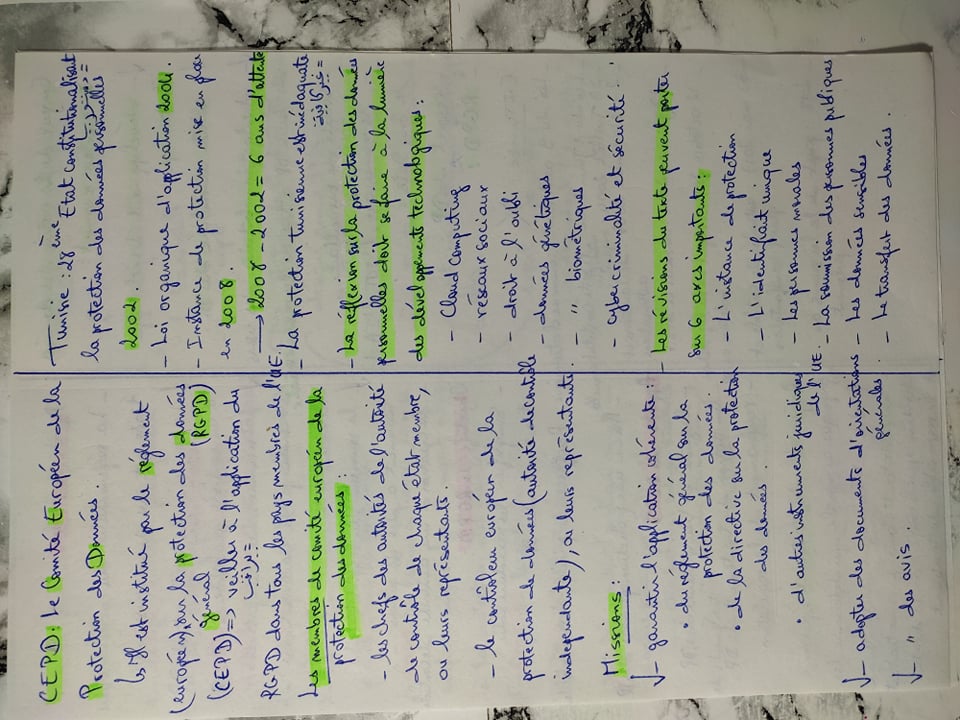 CEPD: le Comité Européen de la
Protection des Données.
est institué par le règlement
(européen) sur la protection des données
général (RGPD)
(CEPD) => veiller à l'application du
= تراقب
RGPD dans tous les pays membres de l'UE.
Les membres de comité européen de la
protection des données :
- les chefs des autorités de l'autorité
de contrôle de chaque état membre,
ou leurs représentants.
- le contrôleur européen de la
protection de données (autorité de contrôle
indépendante), ou leurs représentants.
Missions :
√- garantir l'application cohérente :
• du règlement général sur la
protection des données.
• de la directive sur la protection
des données.
• d'autres instruments juridiques
de l'UE.
√- adopter des documents d'orientations
générales.
√- " des avis
Tunisie : 28 ème Etat constitutionalisant
la protection des données personnelles
2002.
- Loi organique d'application 2004.
- Instance de protection mise en place
en 2008.
→ 2008 - 2002 = 6 ans d'attente
- La protection tunisienne est inadéquate
= غير كافية
- La réflexion sur la protection des données
personnelles doit se faire à la lumière
des développements technologiques :
- Cloud Computing
- réseaux sociaux
- droit à l'oubli
- données génétiques
- " biométriques
- cybercriminalité et sécurité.
- Les révisions du texte peuvent porter
sur 6 axes importants :
- L'instance de protection
- L'identifiant unique
- Les personnes morales
- La soumission des personnes publiques
- Les données sensibles
- Le transfert des données.